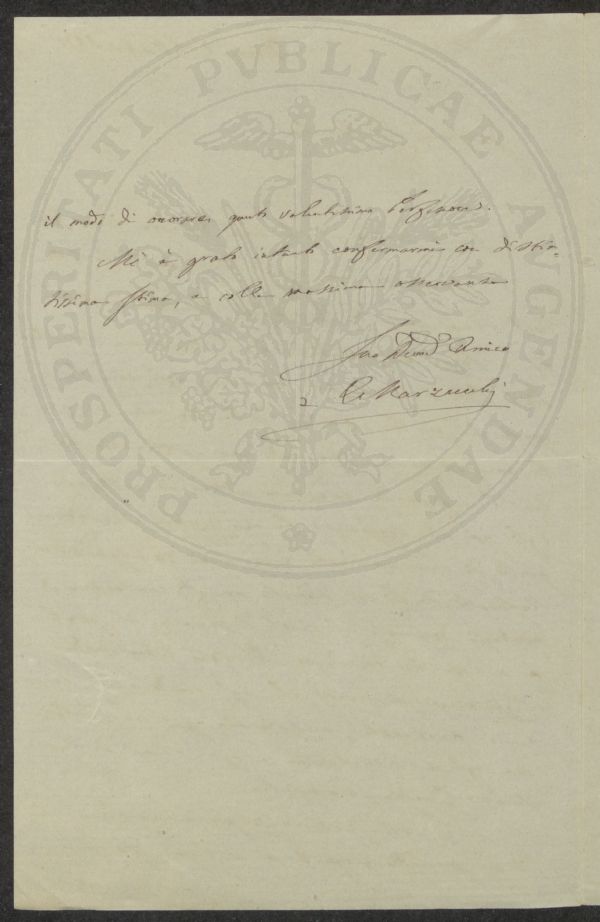 il modo di onorare questo valentissimo Professore.
Mi è grato intanto confermarmi con distin-
tissima stima, e colla massima osservanza
Suo Devmo Amico
C. Marzucchi
PROSPERITATI PVBLICAE AVGENDAE